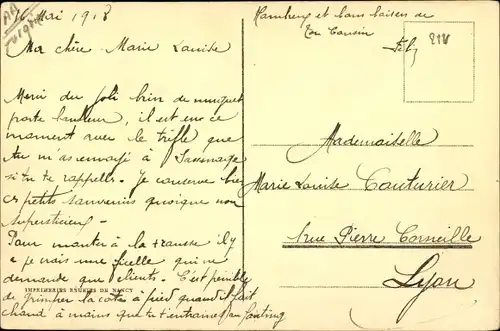 16 Mai 1918
Ma chère Marie Louise
Merci du joli brin de muguet
porte bonheur, il est en ce
moment avec le trèfle que
tu m'as envoyé à Sassenage
si tu te rappelle. Je conserve bien
ces petits souvenirs quoique non
superstitieux.
Pour monter à la trausse il y
a je vais une ficelle qui ne
demande que clients. C'est pénible
IMPRIMERIES RÉUNIES DE NANCY
de grimper la côte à pied quand il fait
chaud à moins que tu t'entraînes au footing
Nombreux et bons baisers de
ton Cousin
Mademoiselle
Marie Louise Couturier
rue Pierre Corneille
Lyon